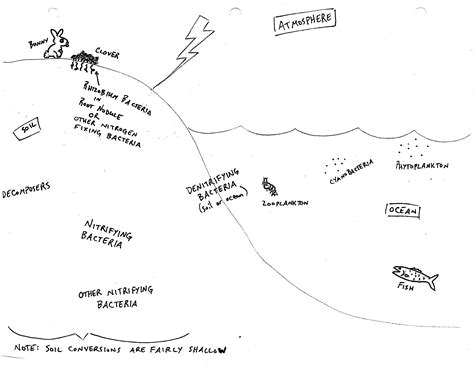 ATMOSPHERE
BUNNY
CLOVER
RHIZOBIUM BACTERIA
IN
ROOT NODULE
OR
OTHER NITROGEN
FIXING BACTERIA
SOIL
DECOMPOSERS
DENITRIFYING
BACTERIA
(soil or ocean)
ZOOPLANKTON
CYANOBACTERIA
PHYTOPLANKTON
OCEAN
NITRIFYING
BACTERIA
FISH
OTHER NITRIFYING
BACTERIA
NOTE: SOIL CONVERSIONS ARE FAIRLY SHALLOW